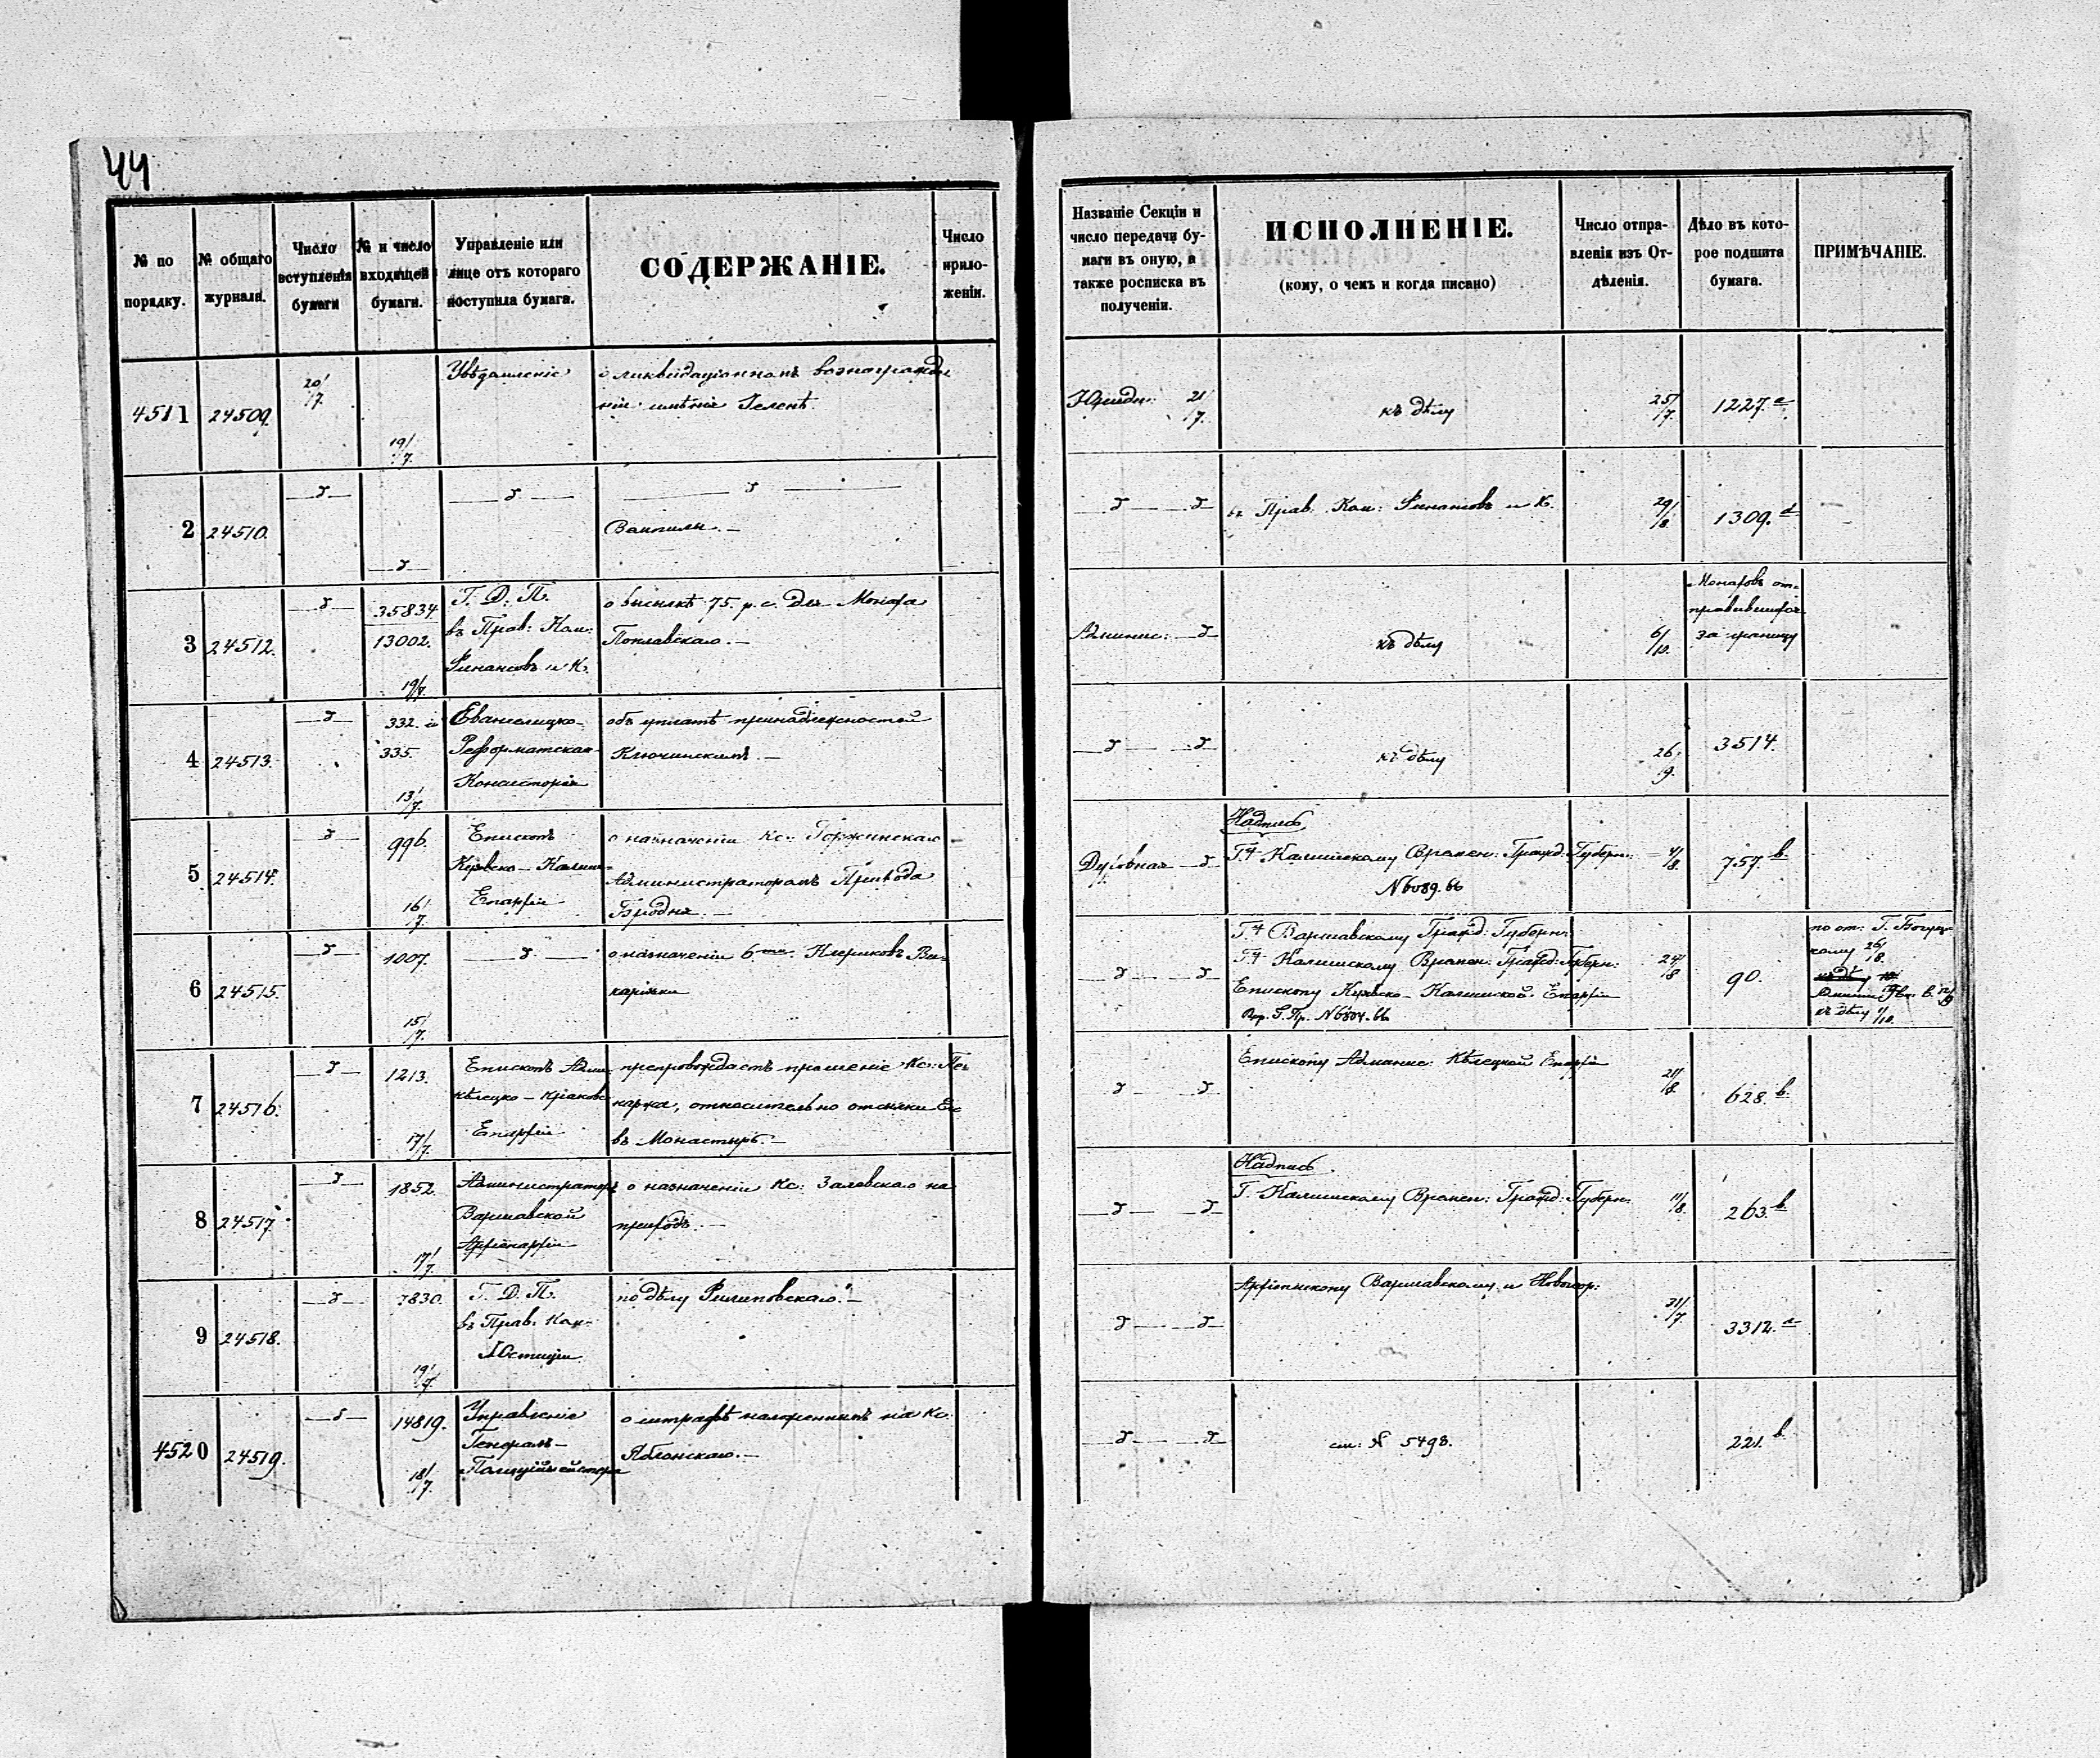 44
№ по порядку.
№ общаго журнала.
Число вступленія бумаги
№ и число входящей бумаги.
Управленіе или лице отъ котораго поступила бумага.
СОДЕРЖАНІЕ.
Число прило-женій.
Названіе Секціи и число передачи бу-маги въ оную, а также росписка въ полученіи.
ИСПОЛНЕНІЕ.
(кому, о чемъ и когда писано)
Число отпра-вленія изъ От-дѣленія.
Дѣло въ кото-рое подшита бумага.
ПРИМѢЧАНІЕ.
4511 24509. 20/7. 19/7.
Увѣдомленіе
о ликвидаціонномъ вознагражде
ніи имѣнія
21/7.
къ дѣлу
25/7. 1227.
2 24510.
въ Прав. Ком: Финансовъ и К.
29/8. 1309.
3 24512. 35834 13002. 19/7.
Г. Д. П.
въ Прав: Ком:
Финансовъ и К.
о высылкѣ 75. р. с. для Монаха
Поплавскаго. —
Админис:
къ дѣлу
6/10.
Монаховъ от-
правившихся
за границу
4 24513. 332. и 335. 13/7.
Евангелицко-
Реформатская
Консисторія
объ уплатѣ принадлежностей
Ключинскимъ. —
къ дѣлу
26/9. 3514.
5 24514. 996. 16/7.
Епископъ
Куявско-Калиш-
Епархіи
о назначеніи Кс: Горжинскаго
Администраторомъ Прихода
Бродня. —
Духовная
Надпись
Гну Калишскому Времен: Гражд: Губерн:
N 6089.66
4/8. 757. в.
6 24515. 1007. 15/7.
о назначеніи 6ти Клериковъ Ви-
каріями
Гну Варшавскому Гражд: Губерн:
Гну Калишскому Времен: Гражд: Губерн:
Епископу Куявско-Калишской Епархіи
24/8 90.
къ дѣлу
7 24516. 1213. 17/7.
Епископъ Адми:
Кѣлецко-Краковс
Епархіи
препровождаетъ прошеніе Кс:
относительно отсылки Его
въ Монастырь. —
Епископу Админис: Кѣлецкой Епархіи
21/8. 628. в.
8 24517. 1852. 17/7.
Администраторъ
Варшавской
Архіепархіи
о назначеніи Кс: Залевскаго на
приходъ. —
Надпись
Г. Калишскому Времен: Гражд: Губерн:
11/8. 263. в
9 24518. 7830. 19/7.
Г. Д. П.
въ Прав: Ком:
Юстиціи.
по дѣлу Филиповскаго. —
Архіепископу Варшавскому и Новогеор:
31/7. 3312.
4520 24519. 14819. 18/7.
Управленіе
Генералъ-
Полиціймейстера
о штрафѣ наложенномъ на Кс.
Яблонскаго. —
см: N 5498.
221. в